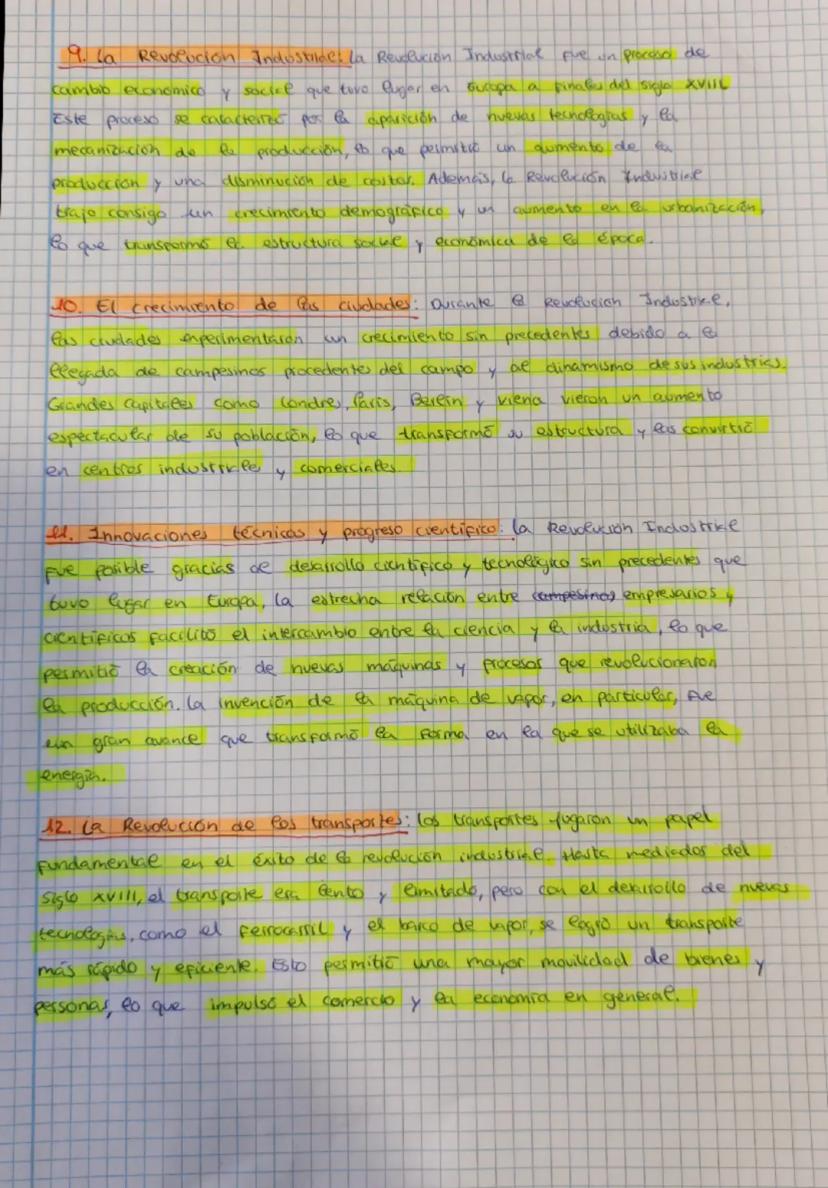 9. La Revolución Industrial: La Revolución Industrial fue un proceso de
cambio económico y social que tuvo lugar en Europa a finales del siglo XVIII
Este proceso se caracterizó por la aparición de nuevas tecnologías y la
mecanización de la producción, lo que permitió un aumento de la
producción y una disminución de costos. Además, la Revolución Industrial
trajo consigo un crecimiento demográfico y un aumento en la urbanización,
lo que transformó la estructura social y económica de la época.
10. El crecimiento de las ciudades: Durante la Revolución Industrial,
las ciudades experimentaron un crecimiento sin precedentes debido a la
llegada de campesinos procedentes del campo y al dinamismo de sus industrias.
Grandes capitales como Londres, París, Berlín y Viena vieron un aumento
espectacular de su población, lo que transformó su estructura y las convirtió
en centros industriales y comerciales
11. Innovaciones técnicas y progreso científico: La Revolución Industrial
fue posible gracias al desarrollo científico y tecnológico sin precedentes que
tuvo lugar en Europa, La estrecha relación entre campesinos empresarios y
científicos facilitó el intercambio entre la ciencia y la industria, lo que
permitió la creación de nuevas máquinas y procesos que revolucionaron
la producción. La invención de la máquina de vapor, en particular, fue
un gran avance que transformó la forma en la que se utilizaba la
energía.
12. La Revolución de los transportes: Los transportes jugaron un papel
fundamental en el éxito de la revolución industrial. Hasta mediados del
siglo XVIII, el transporte era lento y limitado, pero con el desarrollo de nuevas
tecnologías, como el ferrocarril y el barco de vapor, se logró un transporte
más rápido y eficiente. Esto permitió una mayor movilidad de bienes y
personas, lo que impulsó el comercio y la economía en general.